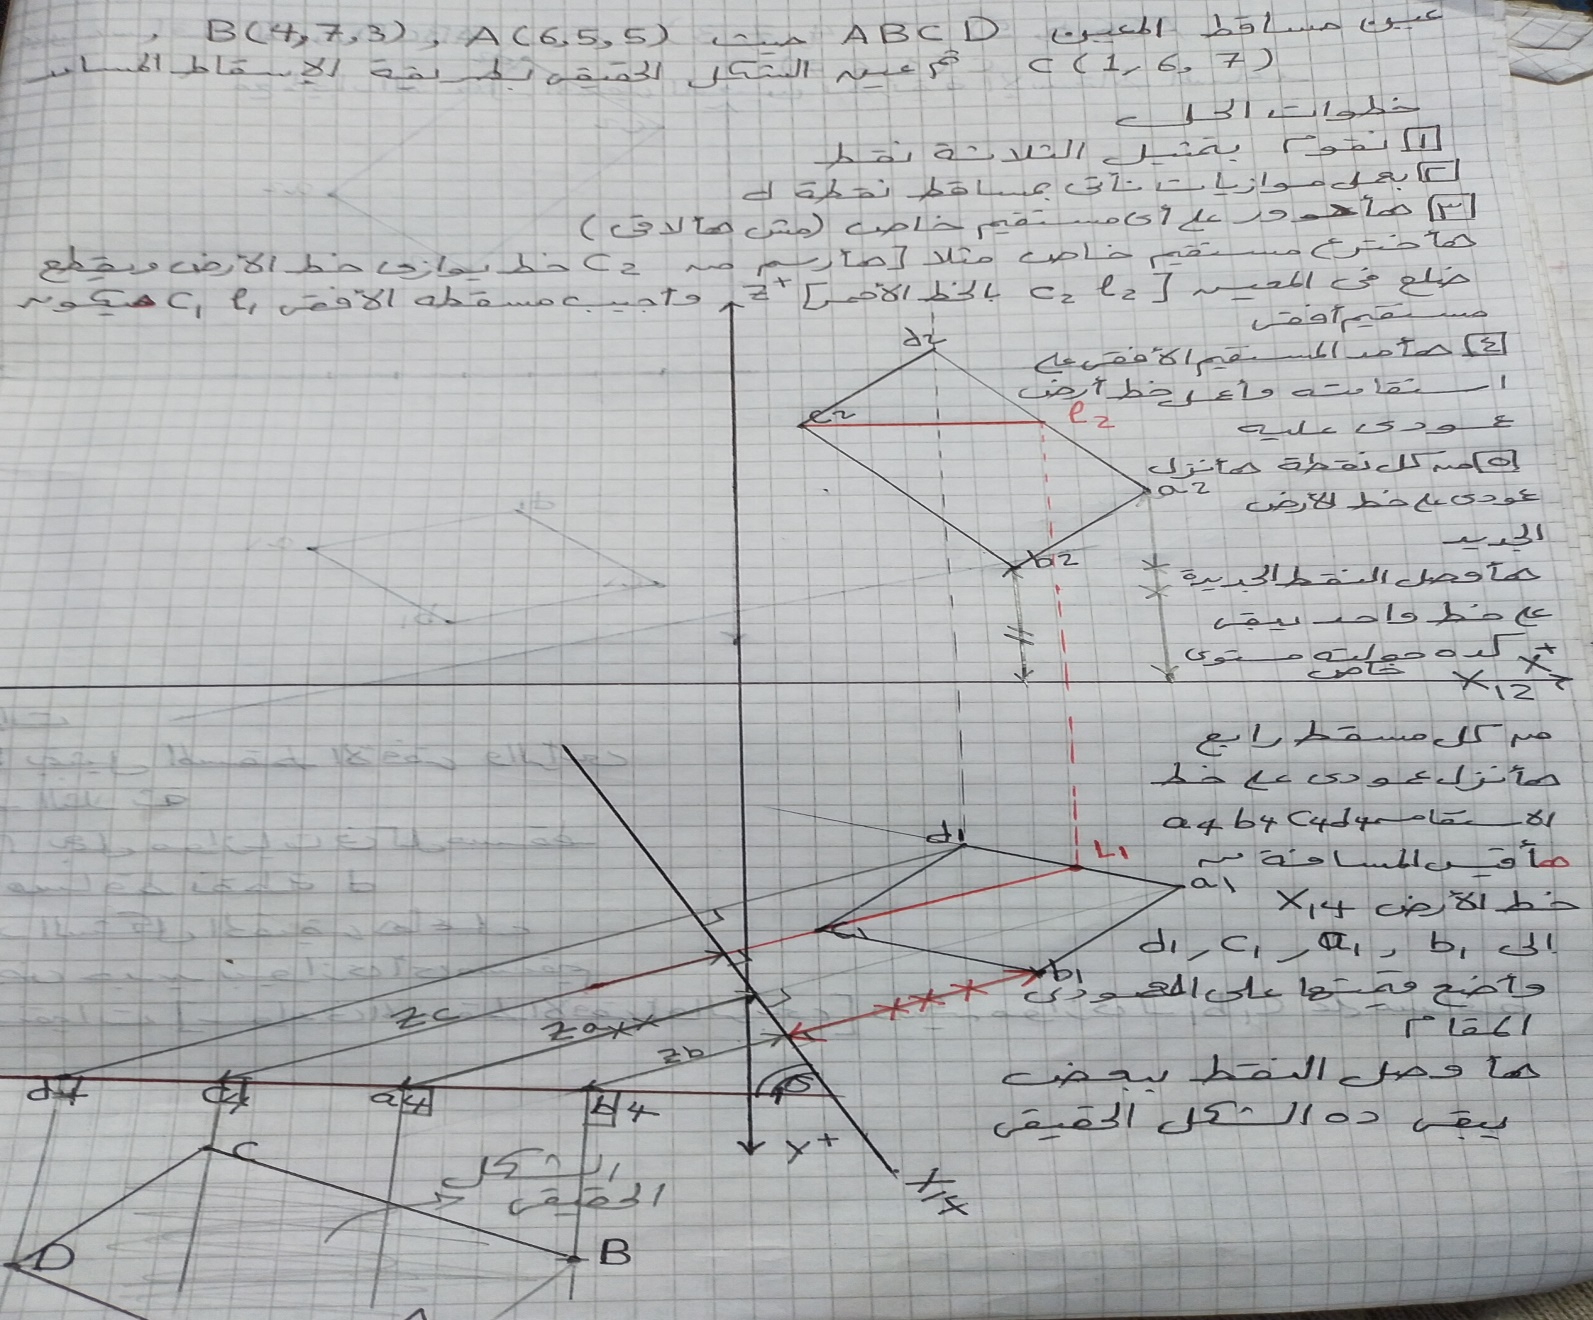 عين مساقط المعين ABCD حيث A(6,5,5) , B(4,7,3) ,
C(1,6,7) ثم عين الشكل الحقيقى بطريقة الإسقاط المساعد
خطوات الحل
[١] نقوم بتمثيل الثلاثة نقط
[٢] بعمل موازيات تأتى بمساقط نقطة d
[٣] هأدور على أى مستقيم خاص (مش هلاقى)
هأخترع مستقيم خاص مثلا [هأرسم من c2 خط يوازى خط الأرض ويقطع
ضلع فى المعين [c2 l2 بالخط الأحمر] وأجيب مسقطه الأفقى c1 l1 هيكون
مستقيم أفقى
[٤] هأمد المستقيم الأفقى على
استقامته وأعمل خط أرض
عمودى عليه
[٥] من كل نقطة هأنزل
عمودى على خط الأرض
الجديد
هأوصل النقط الجديدة
على خط واحد يبقى
كده حولته مستوى
خاص
من كل مسقط رابع
هأنزل عمودى على خط
الاستقامة a4 b4 c4 d4
هأقيس المسافة من
خط الأرض X14
الى b1 , a1 , c1 , d1
وأضع قيمتها على العمودى
المقام
هأوصل النقط ببعض
يبقى ده الشكل الحقيقى
z+
d2
c2
l2
a2
b2
x+
X12
d1
L1
a1
c1
b1
zc
za
zb
d4
c4
a4
b4
y+
C
الشكل
الحقيقى
D
B